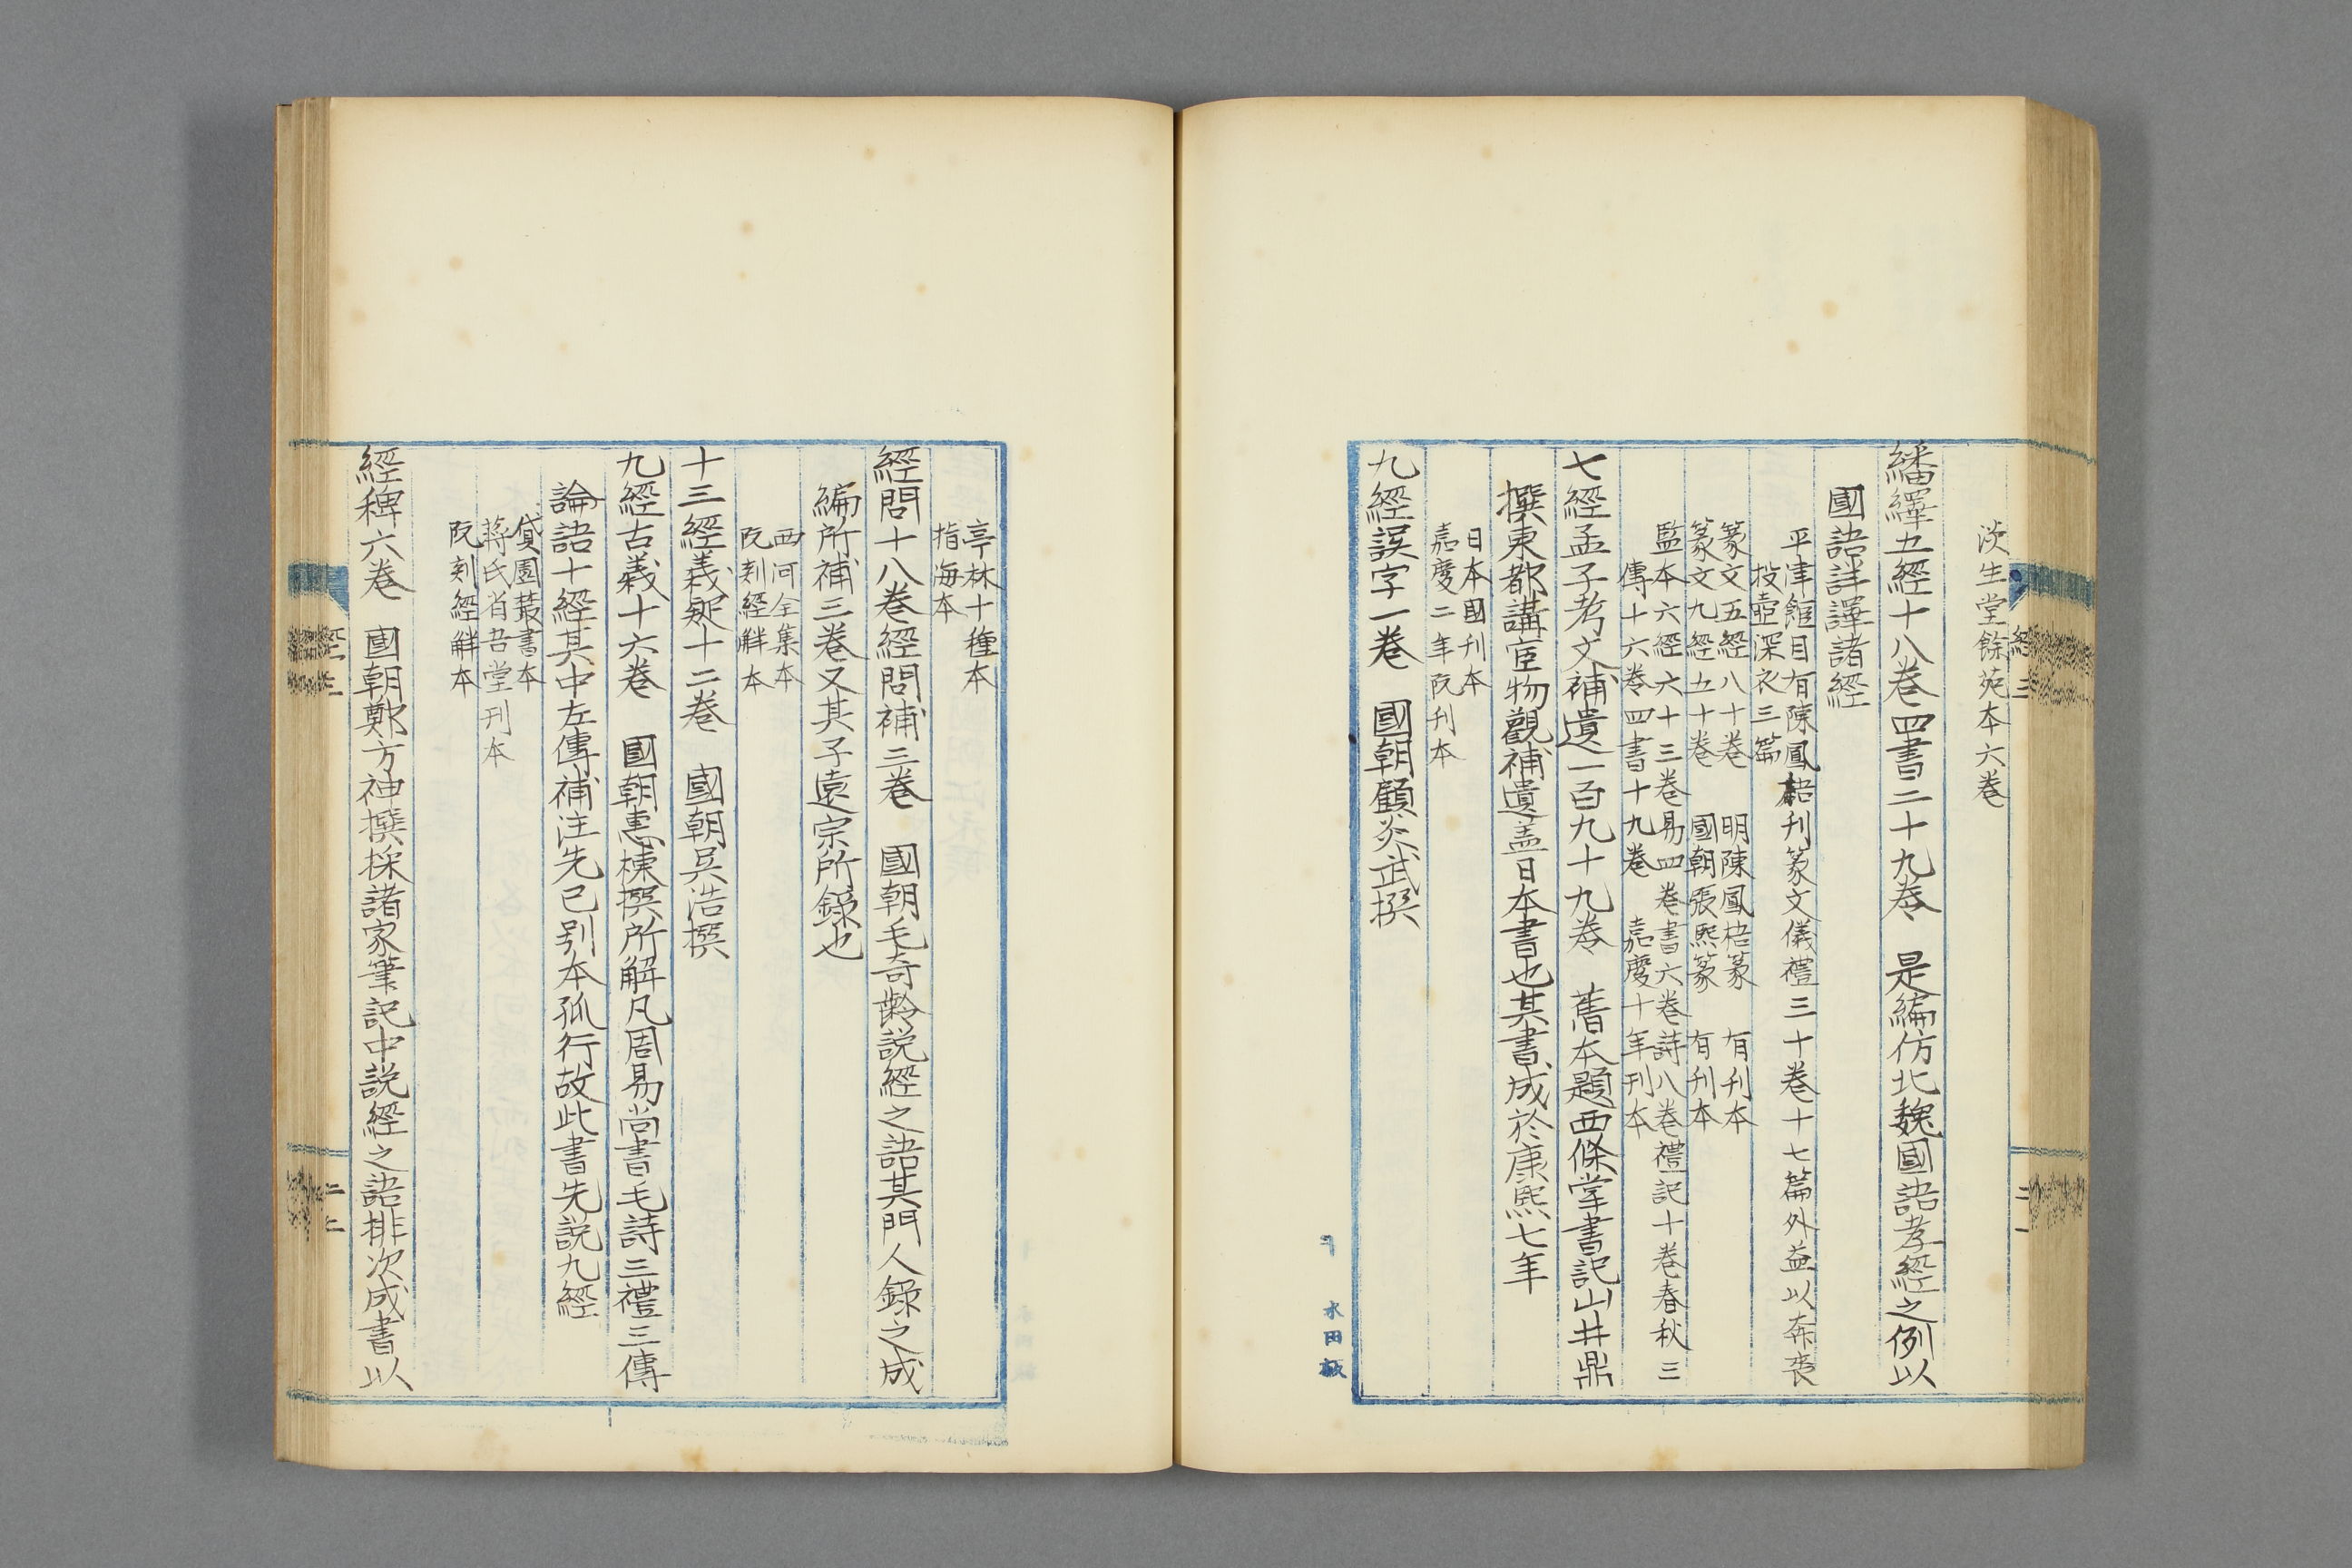 淡生堂餘苑本六巻
繙繹五經十八巻四書二十九巻 是編仿北魏國語孝經之例以
國語詳譯諸經
平津館目有陳鳳梧刊篆文儀禮三十巻十七篇外益以奔喪
投壺深衣三篇
篆文五經八十巻 明陳鳳梧篆 有刊本
篆文九經五十巻 國朝張熙篆 有刊本
監本六經六十三巻易四巻書六巻詩八巻禮記十巻春秋三
傳十六巻四書十九巻 嘉慶十年刊本
七經孟子考文補遺一百九十九巻 舊本題西條掌書記山井鼎
撰東都講官物觀補遺盖日本書也其書成於康熙七年
日本國刊本
嘉慶二年阮刊本
九經誤字一巻 國朝顧炎武撰
經三
二一
水田
亭林十種本
指海本
經問十八巻經問補三巻 國朝毛奇齡説經之語其門人錄之成
編所補三巻又其子遠宗所錄也
西河全集本
阮刻經解本
十三經義疑十二巻 國朝吳浩撰
九經古義十六巻 國朝惠棟撰所解凡周易尚書毛詩三禮三傳
論語十經其中左傳補注先已别本孤行故此書先説九經
貸園叢書本
蔣氏省吾堂刊本
阮刻經解本
經稗六巻 國朝鄭方坤撰採諸家筆記中説經之語排次成書以
經三
二二